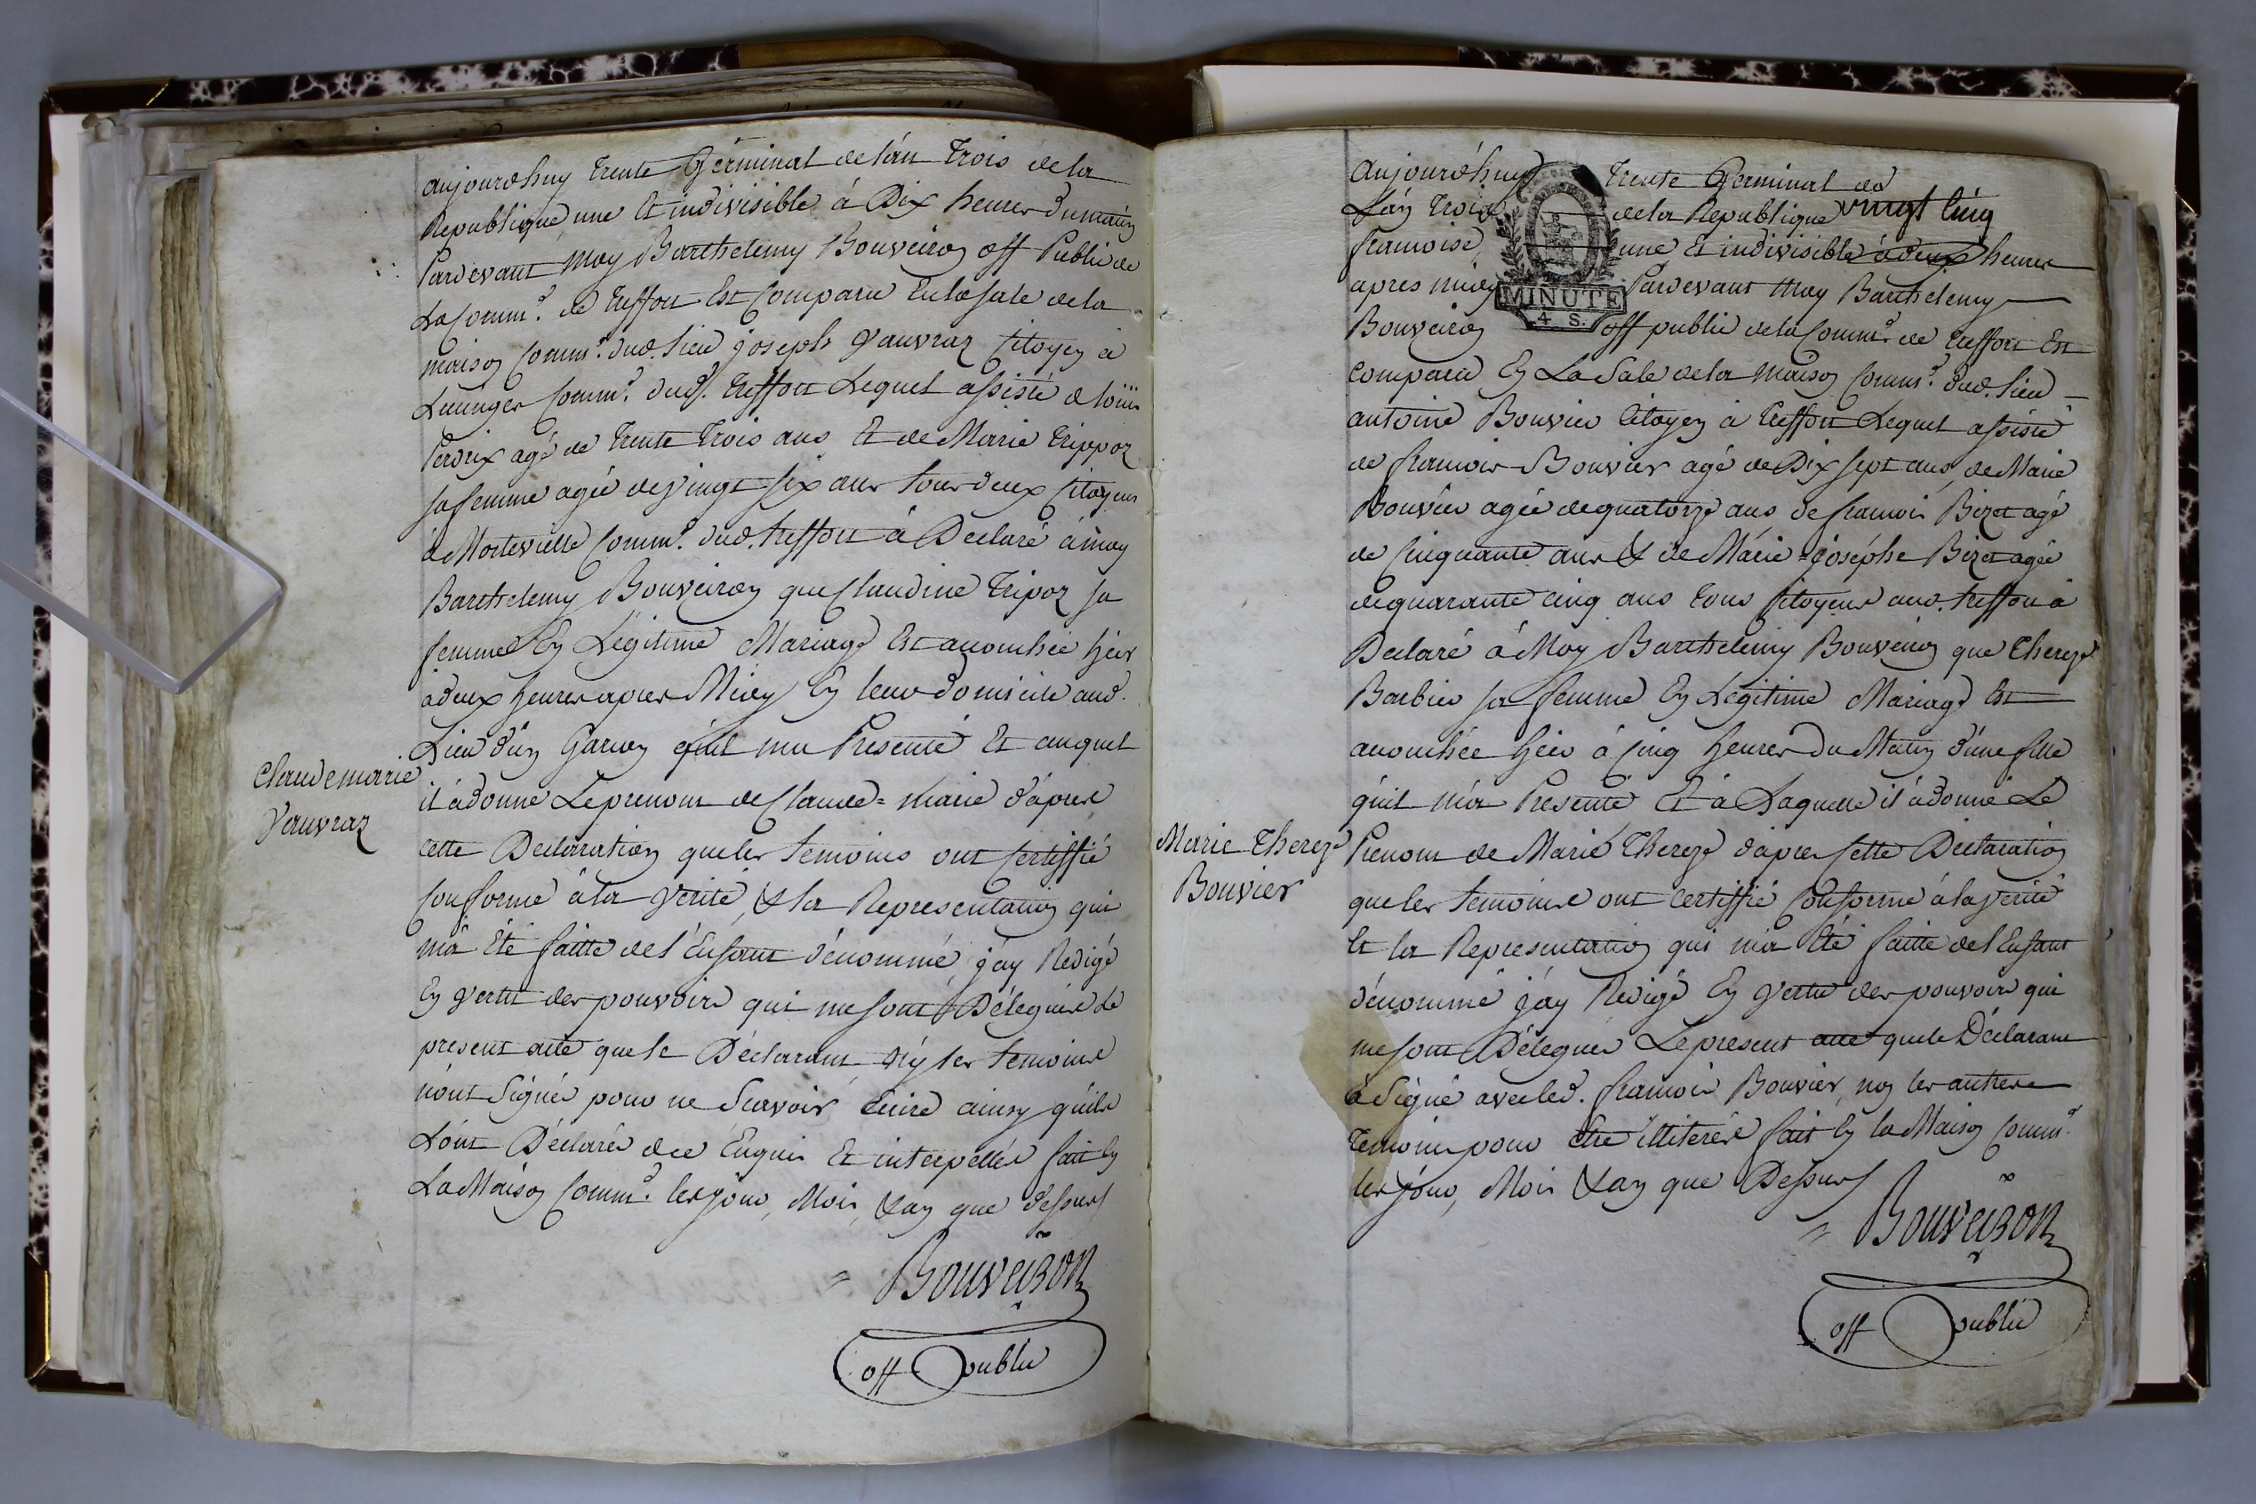 aujourdhuy trente Germinal de l'an trois de la
Republique, une et indivisible à Dix heures du matin
Pardevant moy Barthelemy Bouveiron off Public de
La Comm.e de treffort Est Comparu En la sale de la
maison Comm.e dud. lieu joseph Vauvraz Citoyen à
Lucinges Comm.e dud. treffort Lequel assisté de loüis
Perdrix agé de trente trois ans et de Marie trippoz
sa femme agée de vingt six ans tous deux Citoyens
à Montevielle Comm.e dud. treffort à Declaré à moy
Barthelemy Bouveiron que Claudine tripoz sa
femme En Légitime Mariage Est accouchée hier
à deux heures apres Midy En leur domicile aud.
Lieu d'un Garcon qu'il ma Presenté Et auquel
il à donné Le prenom de Claude=Marie d'apres
cette Declaration que les temoins ont certiffié
Conforme à la verité, & la Representation qui
m'a Eté faitte de l'Enfant dénommé, j'ay Redigé
En vertu des pouvoirs qui me sont Délegués Le
present acte que le Déclarant n'y les temoins
n'ont Signés pour ne Scavoir Ecrire ainsy qu'ils
L'ont Déclarés de ce Enquis Et interpellés fait En
La Maison Comm.e les jour, Mois, & an que dessus
Bouveiron
off public
Claude marie
Vauvraz
Aujourd'huy trente Germinal de
L'an trois de la Republique vingt Cinq
francoise, une Et indivisible à deux heures
apres midy Pardevant moy Barthelemy
MINUTE
4 S.
Bouveiron off public de la Comm.e de treffort Est
Comparu En La Sale de la Maison Comm.e dud. lieu
antoine Bouvier Citoyen à treffort Lequel assisté
de francois Bouvier agé de Dix sept ans, de Marie
Bouvier agée de quatorze ans de francois Bizet agé
de Cinquante ans & de Marie=joséphe Bizet agée
de quarante cinq ans tous Citoyens aud. treffort à
Declaré à Moy Barthelemy Bouveiron que thereze
Barbier sa femme En Légitime Mariage Est
accouchée hier à Cinq heures du Matin d'une fille
qu'il m'a Presenté Et à Laquelle il à donné Le
Prenom de Marie thereze d'apres Cette Declaration
que les temoins ont certiffié Conforme à la verité
Et la Representation qui m'a Eté faitte de l'Enfant
dénommé j'ay Redigé En vertu des pouvoirs qui
me sont Délegués Le present acte que le Déclarant
à Signé avec led. francois Bouvier, non les autres
temoins pour Etre illiterés fait En la Maison Comm.e
les jour, Mois & an que Dessus
Bouveiron
off public
Marie Thereze
Bouvier